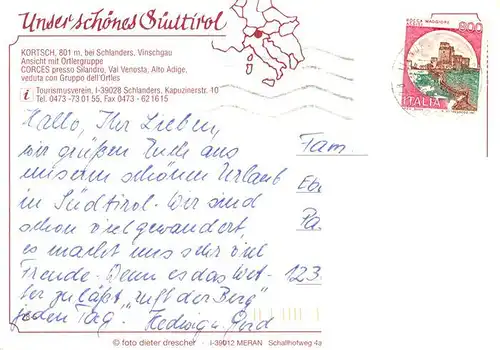 Unser schönes Südtirol
KORTSCH, 801 m, bei Schlanders, Vinschgau
Ansicht mit Ortlergruppe
CORCES presso Silandro, Val Venosta, Alto Adige,
veduta con Gruppo dell'Ortles
i Tourismusverein, I-39028 Schlanders, Kapuzinerstr. 10
Tel. 0473 -73 01 55, Fax 0473 - 62 16 15
ROCCA MAGGIORE
ASSISI
800
ITALIA
Hallo, Ihr Lieben,
wir grüßen Euch aus
unserem schönen Urlaub
in Südtirol. Wir sind
schon viel gewandert,
es macht uns sehr viel
Freude. Wenn es das Wet-
ter zuläßt, "ruft der Berg"
jeden Tag. Hedwig u. Gerd
Fam.
Ebe
Pa.
123
© foto dieter drescher · I-39012 MERAN Schallhofweg 4a